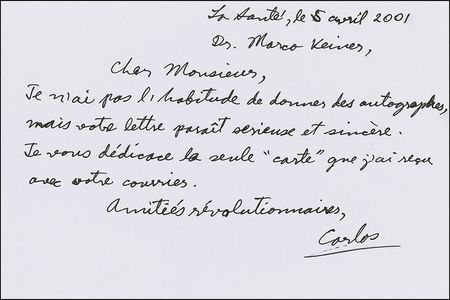 La Santé, le 5 avril 2001
Dr. Marco Keiner,
Cher Monsieur,
Je n'ai pas l'habitude de donner des autographes,
mais votre lettre paraît serieuse et sincère.
Je vous dédicace la seule "carte" que j'ai reçu
avec votre courrier.
Amitiés révolutionnaires,
Carlos